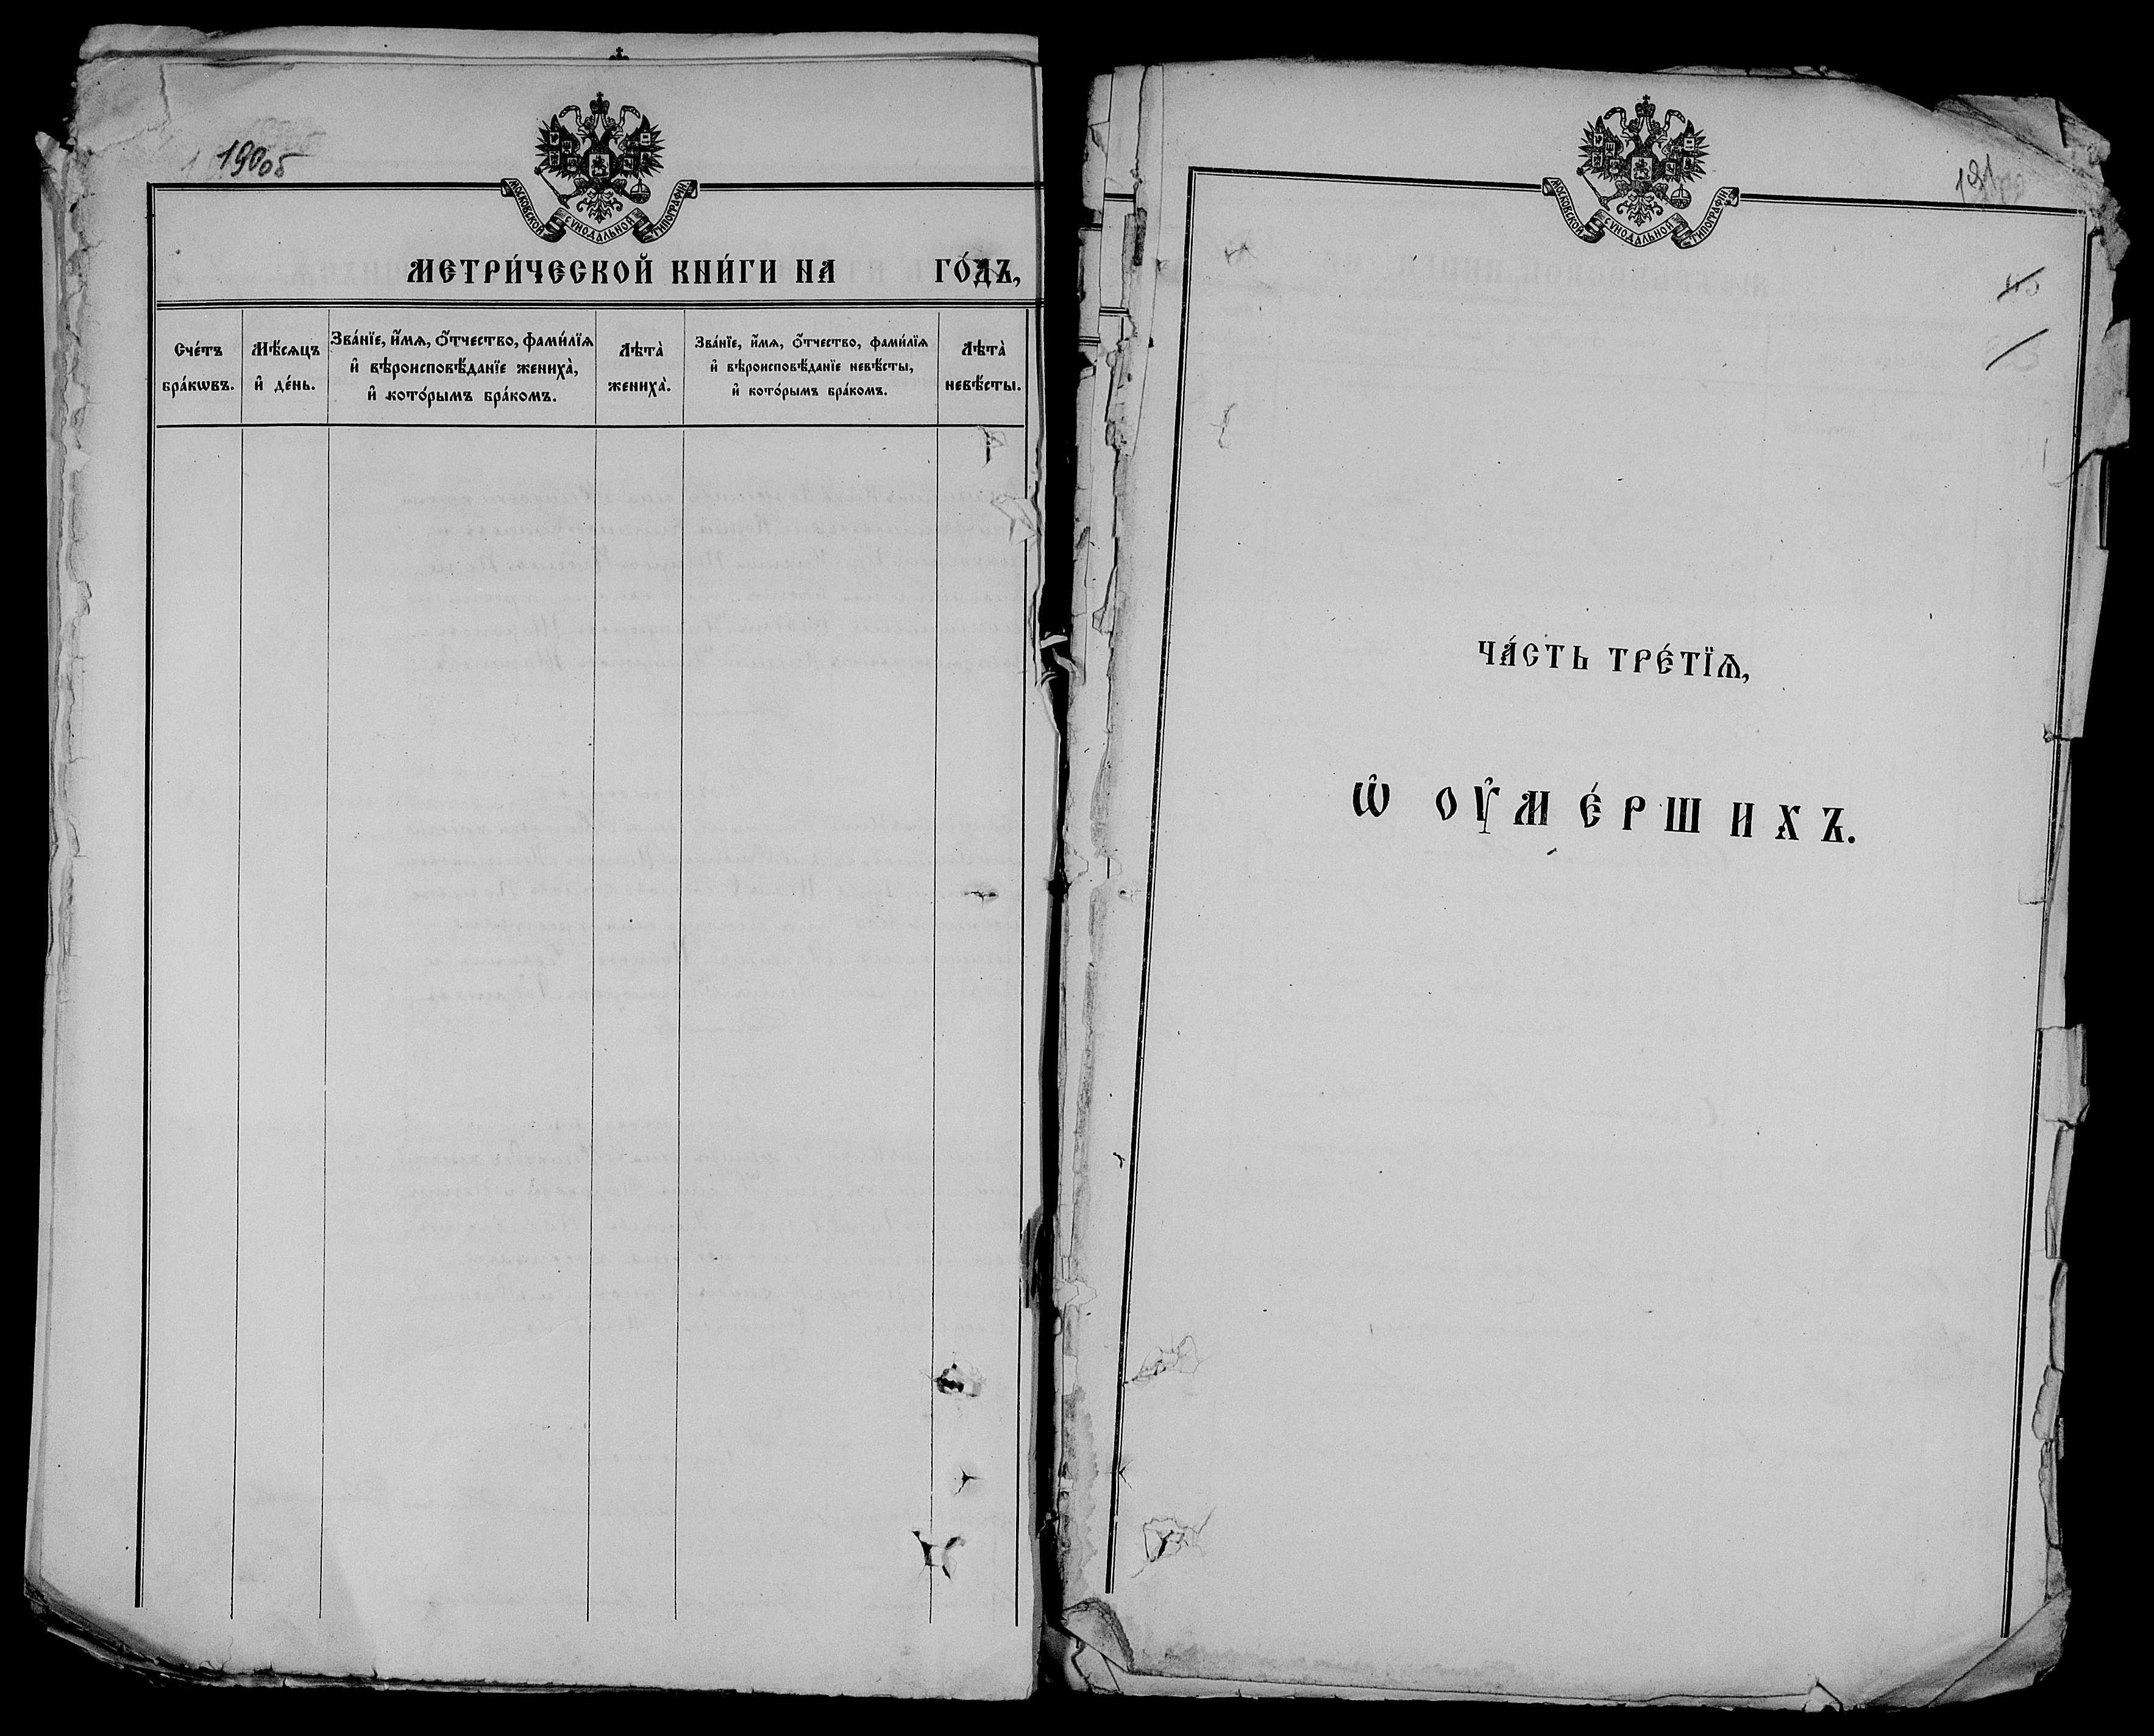 190об
МОСКОВСКОЙ СѴНОДАЛЬНОЙ ТИПОГРАФІИ
МЕТРИ́ЧЕСКОЙ КНИ́ГИ НА ГО́ДЪ,
Сче́тъ
бра́кѡвъ.
Мѣ́сѧцъ
и҆ де́нь.
Зва́нїе, и҆́мѧ, ѻ҆́тчество, фами́лїѧ
и҆ вѣроисповѣ́данїе жениха̀,
и҆ кото́рымъ бра́комъ.
Лѣта̀
жениха̀.
Зва́нїе, и҆́мѧ, ѻ҆́тчество, фами́лїѧ
и҆ вѣроисповѣ́данїе невѣ́сты,
и҆ кото́рымъ бра́комъ.
Лѣта̀
невѣ́сты.
МОСКОВСКОЙ СѴНОДАЛЬНОЙ ТИПОГРАФІИ
191
ЧА́СТЬ ТРЕ́ТЇѦ,
Ѡ҆ ОУ҆МЕ́РШИХЪ.